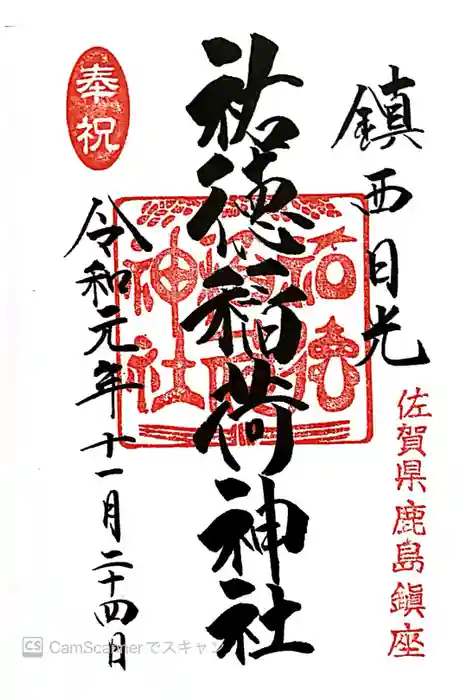 鎮西日光
佐賀県鹿島鎮座
祐徳稲荷神社
祐徳
稲荷
神社
奉祝
令和元年十一月二十四日
CS CamScannerでスキャン